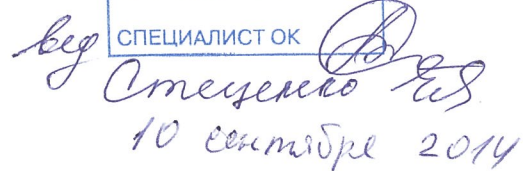 вед СПЕЦИАЛИСТ ОК
Стеценко
10 сентября 2014